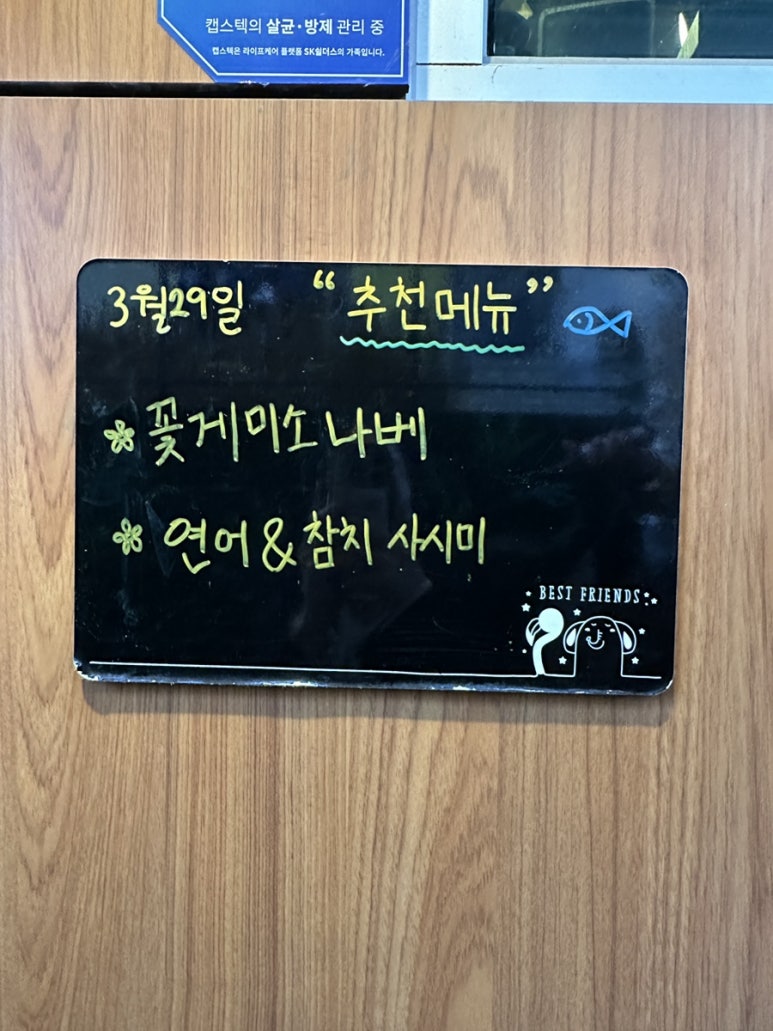 캡스텍의 살균·방제 관리 중
캡스텍은 라이프케어 플랫폼 SK쉴더스의 가족입니다.
3월29일 “추천메뉴”
꽃게미소나베
연어&참치 사시미
BEST FRIENDS